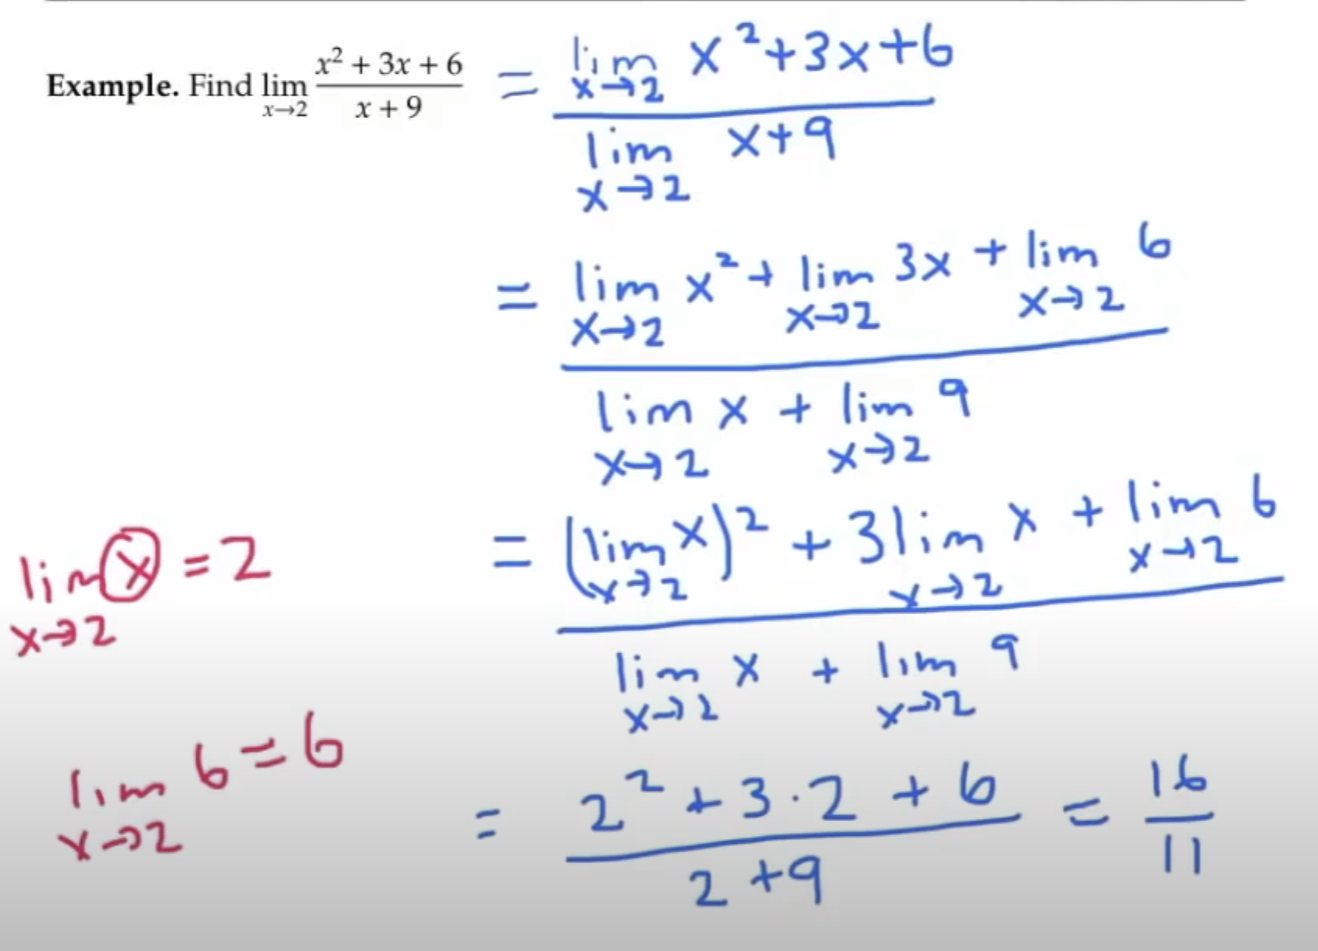 Example. Find lim x→2 (x² + 3x + 6)/(x + 9) = (lim x→2 x²+3x+6)/(lim x→2 x+9)
= (lim x→2 x² + lim x→2 3x + lim x→2 6)/(lim x→2 x + lim x→2 9)
= ((lim x→2 x)² + 3 lim x→2 x + lim x→2 6)/(lim x→2 x + lim x→2 9)
lim x→2 x = 2
lim x→2 6 = 6
= (2² + 3·2 + 6)/(2+9) = 16/11